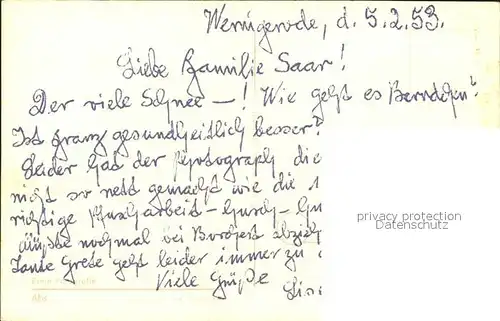 Wernigerode, d. 5.2.53.
Liebe Familie Saar!
Der viele Schnee —! Wie geht es Berndchen?
Ist Franz gesundheitlich besser?
Leider hat der Photograph die
nicht so nett gemacht wie die
richtige Pfuscharbeit –
müßte nochmal bei
Tante Grete geht leider immer zu
Viele Grüße
privacy protection
Datenschutz